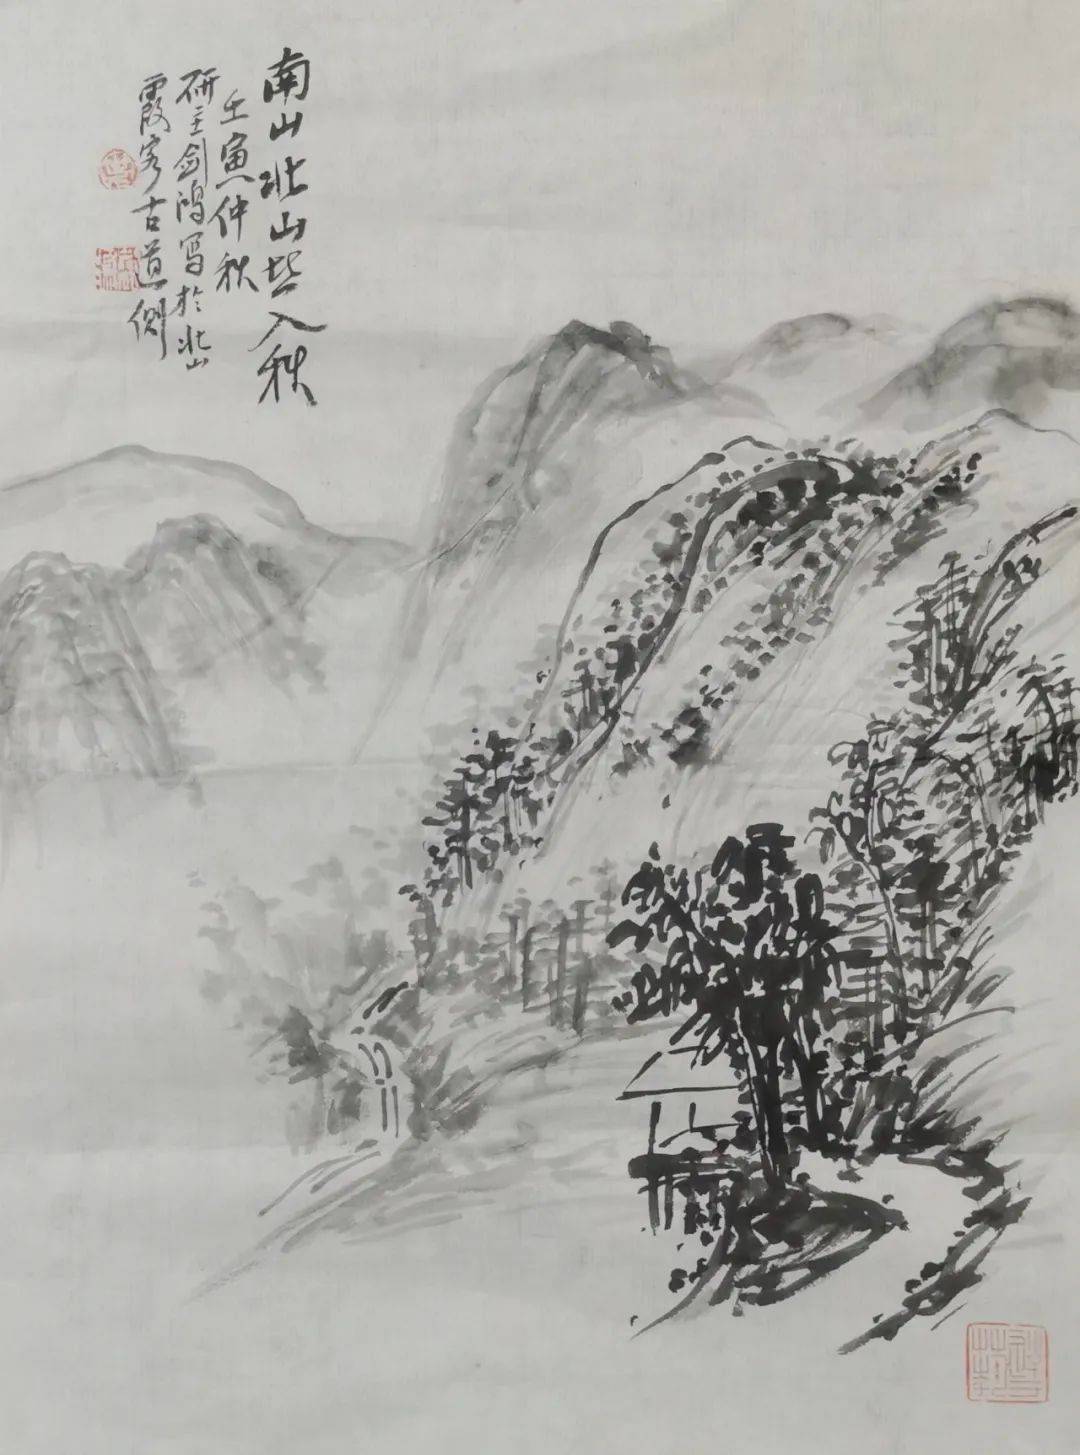 南山北山皆入秋
壬寅仲秋
研主剑鸿写於北山
霞客古道侧